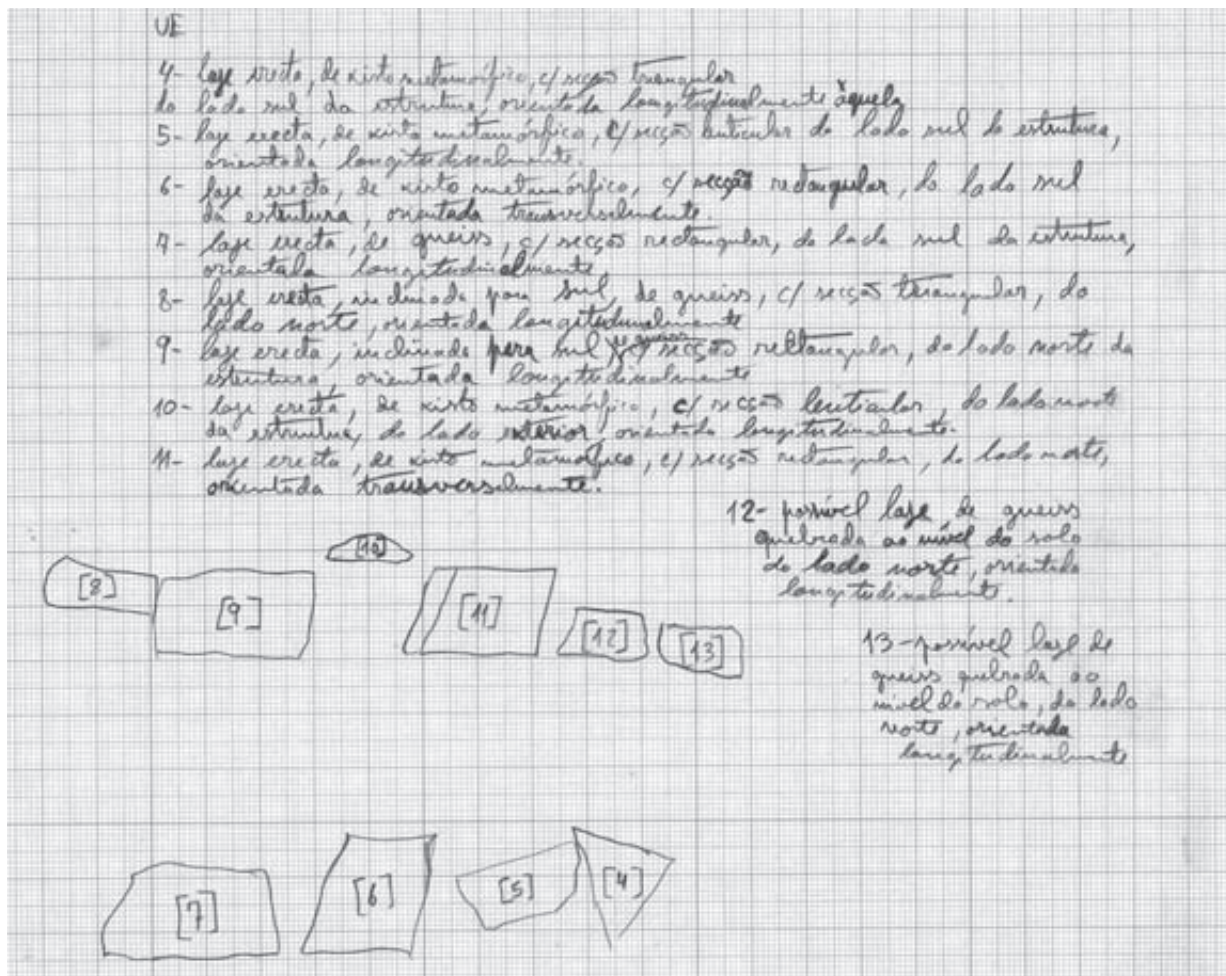 UE
4- laje erecta, de xisto metamórfico, c/ secção triangular
do lado sul da estrutura, orientada longitudinalmente àquela
5- laje erecta, de xisto metamórfico, c/ secção lenticular do lado sul da estrutura,
orientada longitudinalmente.
6- laje erecta, de xisto metamórfico, c/ secção rectangular, do lado sul
da estrutura, orientada transversalmente.
7- laje erecta, de gneiss, c/ secção rectangular, do lado sul da estrutura,
orientada longitudinalmente
8- laje erecta, inclinada para sul, de gneiss, c/ secção triangular, do
lado norte, orientada longitudinalmente
9- laje erecta, inclinada para sul, de gneiss, c/ secção rectangular, do lado norte da
estrutura, orientada longitudinalmente
10- laje erecta, de xisto metamórfico, c/ secção lenticular, do lado norte
da estrutura, do lado exterior, orientada longitudinalmente.
11- laje erecta, de xisto metamórfico, c/ secção rectangular, do lado norte,
orientada transversalmente.
12- possível laje de gneiss
quebrada ao nível do solo
do lado norte, orientada
longitudinalmente.
13- possível laje de
gneiss quebrada ao
nível do solo, do lado
norte, orientada
longitudinalmente
[10]
[8]
[9]
[11]
[12]
[13]
[7]
[6]
[5]
[4]